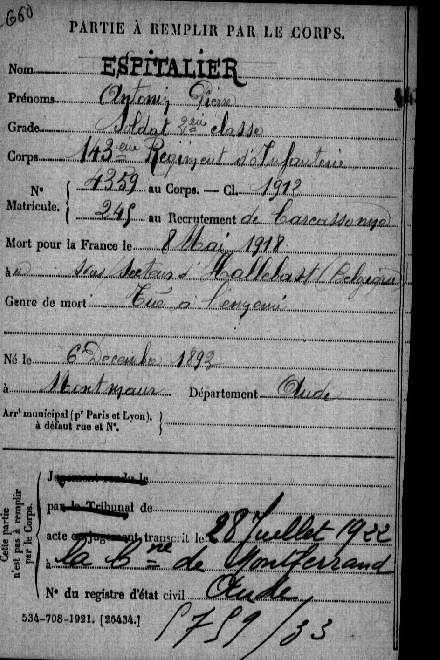 G60
PARTIE À REMPLIR PAR LE CORPS.
Nom ESPITALIER
Prénoms Antonin Pierre
Grade Soldat 2me classe
Corps 143eme Régiment d'Infanterie
N° Matricule. { 4359 au Corps. — Cl. 1912
245 au Recrutement de Carcassonne
Mort pour la France le 8 Mai 1918
à Sous secteur d (Belgique)
Genre de mort Tué à l'ennemi
Né le 6 Décembre 1892
à Montmaur Département Aude
Arrt municipal (pr Paris et Lyon), à défaut rue et N°. }
Cette partie n'est pas à remplir par le Corps.
Jugement rendu le
par le Tribunal de
acte ou jugement transcrit le 28 Juillet 1922
à la Cne de Montferrand
N° du registre d'état civil Aude
534-708-1921. [26434.]
5759/33